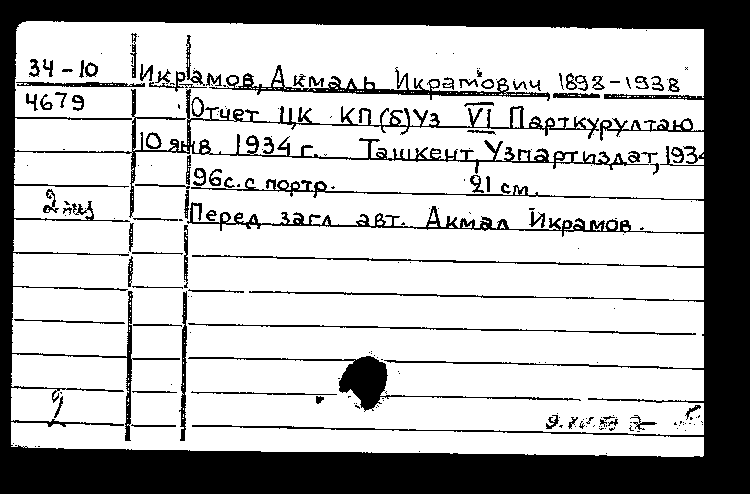 34-10 Икрамов, Акмаль Икрамович, 1898-1938
4679 Отчет ЦК КП(б)Уз VI Парткурултаю
10 янв. 1934 г. Ташкент, Узпартиздат, 1934
96с. с портр. 21 см.
2 Перед загл. авт. Акмал Икрамов.
2